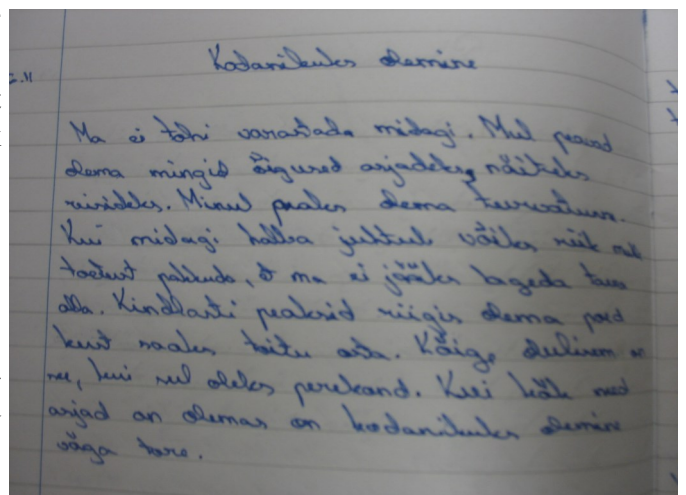 Kodanikuks olemine
Ma ei tohi varastada midagi. Mul peavad
olema mingid õigused asjadeks, näiteks
reisideks. Minul peaks olema turvatunne.
Kui midagi halba juhtub võiks riik mulle
toetust pakkuda, et ma ei jääks lageda taeva
alla. Kindlasti peaksid riigis olema poed
kust saaks toitu osta. Kõige olulisem on
see, kui sul oleks perekond. Kui kõik need
asjad on olemas on kodanikuks olemine
väga tore.